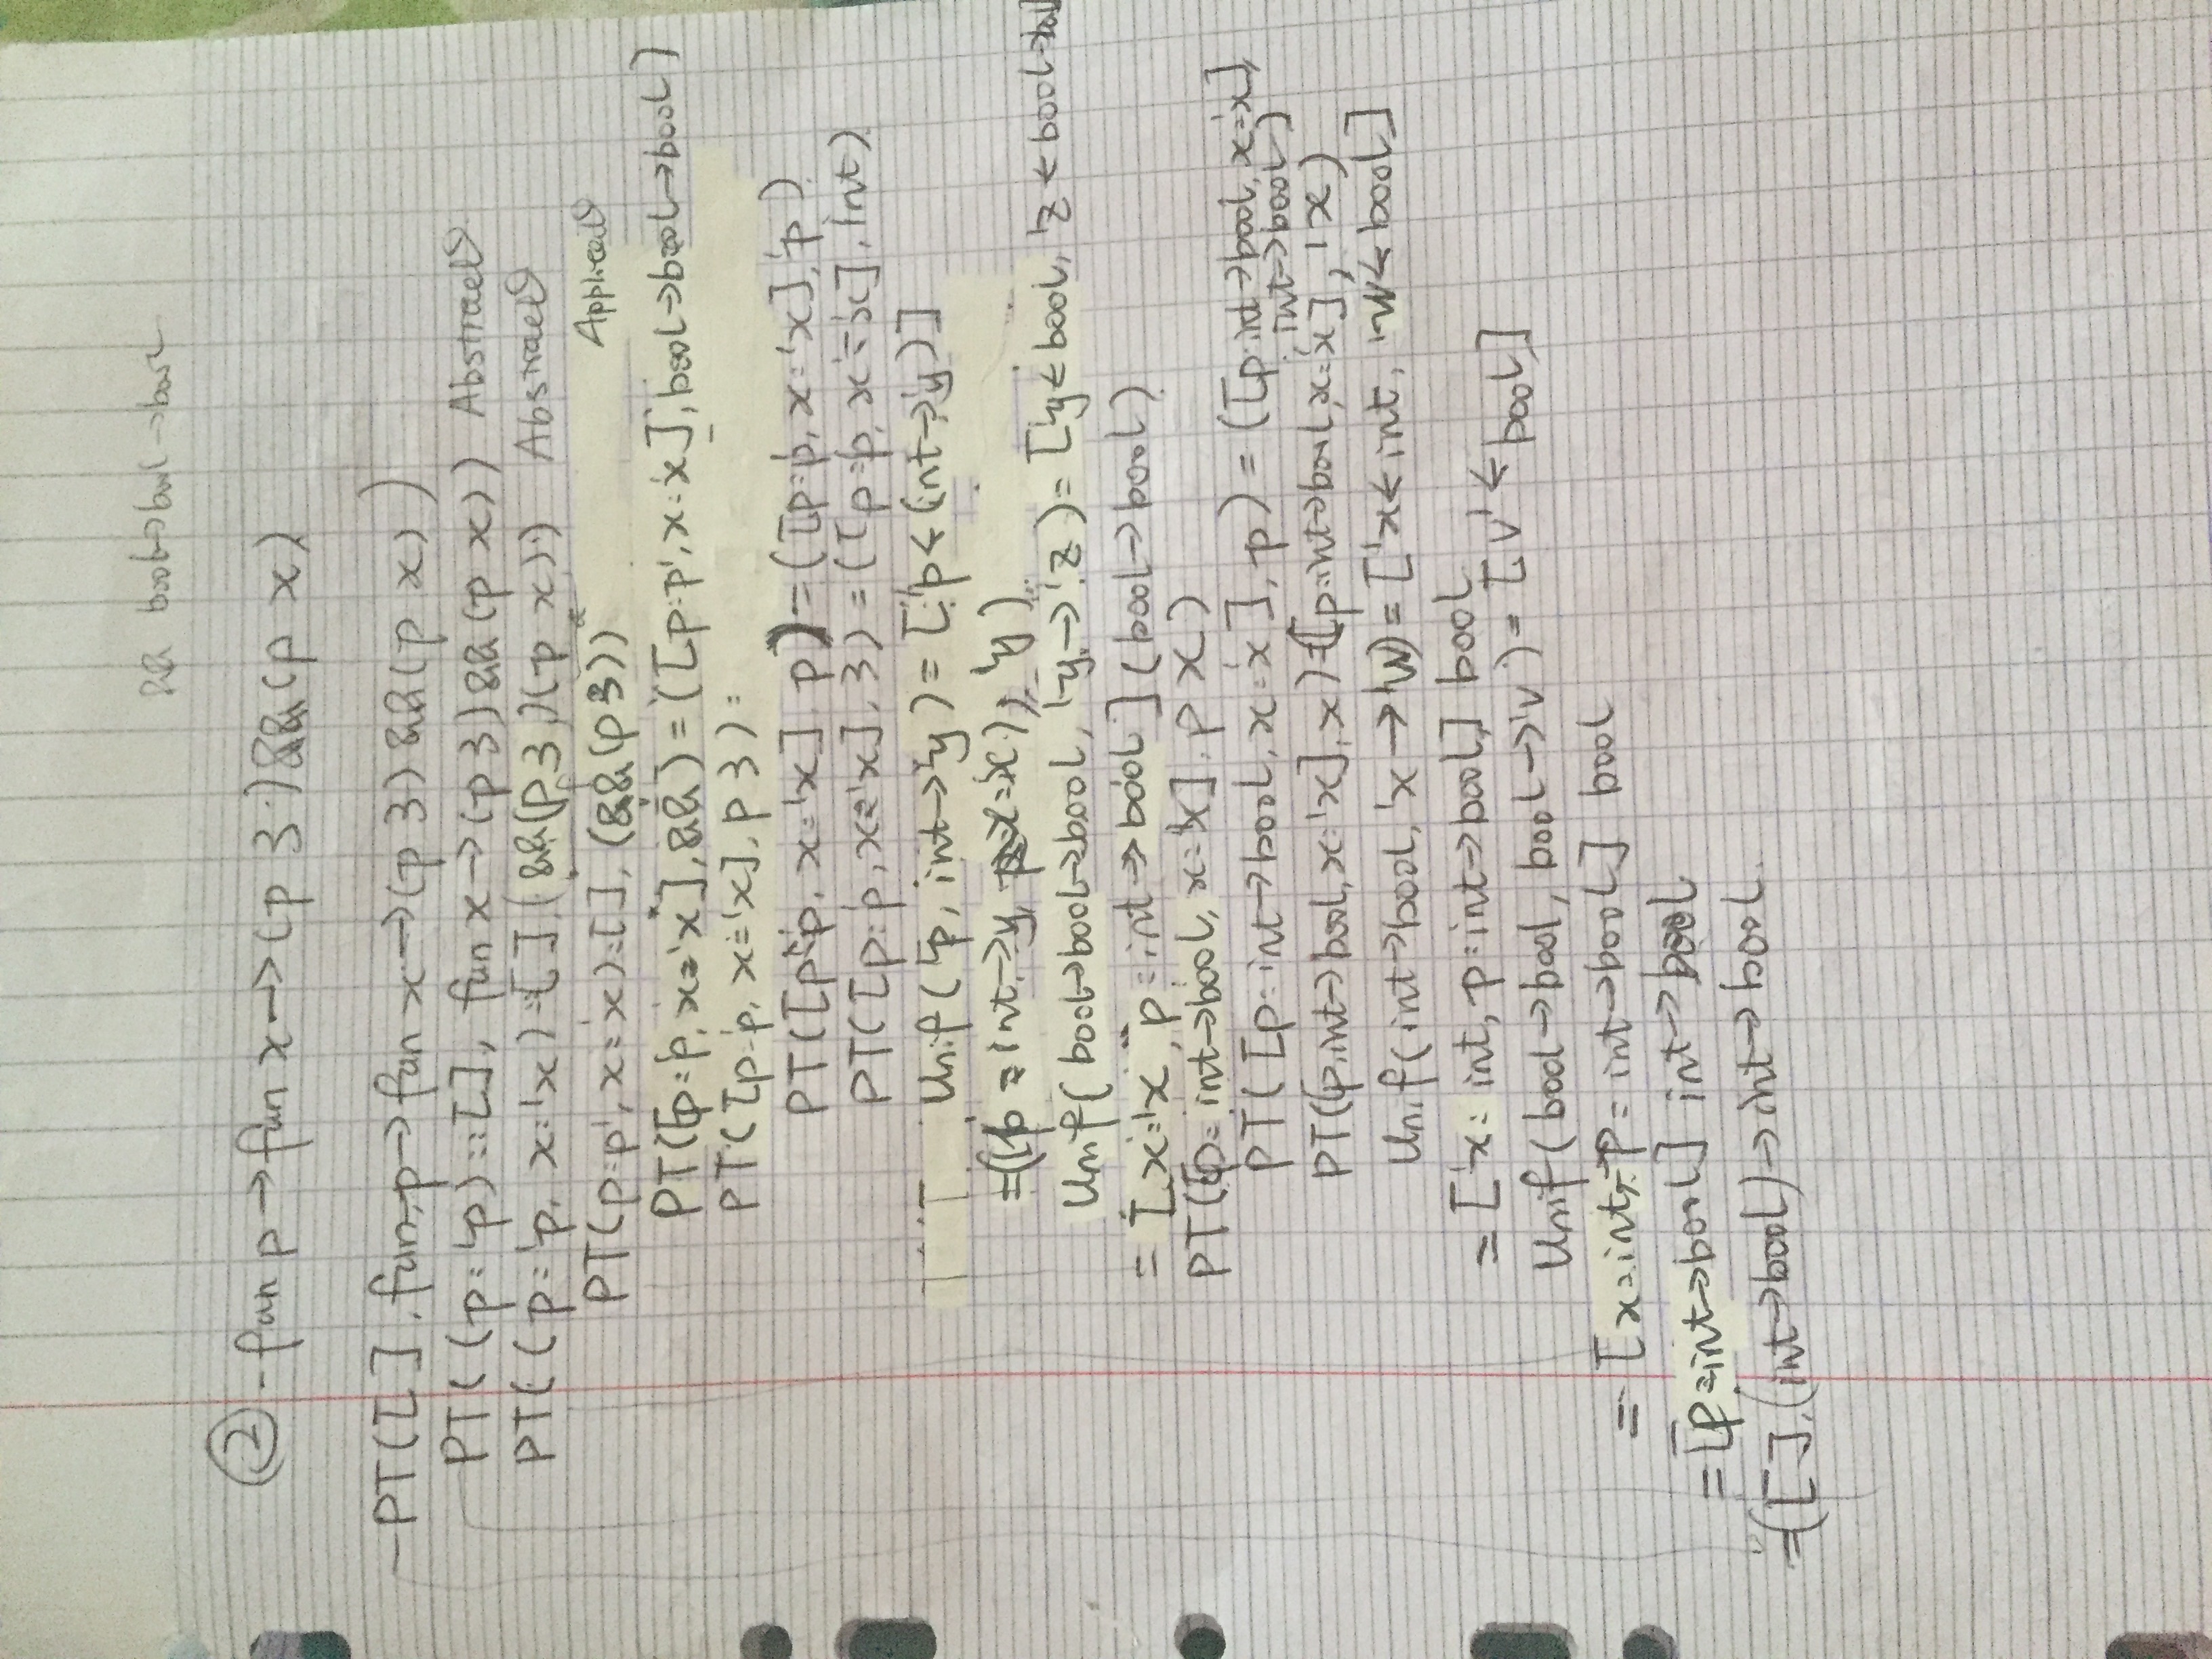 && bool→bool→bool
② - fun p → fun x → (p 3) && (p x)
- PT([ ], fun p → fun x → (p 3) && (p x))
PT((p:'p)::[], fun x → (p 3) && (p x)) Abstract
PT((p:'p, x:'x)::[], (&&(p 3)(p x))) Abstract
PT(p:p', x:'x)::[], (&&(p 3)) Applicat
PT([p:'p, x:'x], &&) = ([p:p', x:'x], bool→bool→bool)
PT([p:'p, x:'x], p 3) =
PT([p:'p, x:'x], p) = ([p:'p, x:'x], 'p)
PT([p:'p, x:'x], 3) = ([p:'p, x:'x], int)
Unif('p, int→'y) = ['p ← (int→'y)]
=([p:int→'y, x:'x], 'y)
Unif(bool→bool→bool, 'y→'z) = ['y ← bool, 'z ← bool→bool]
= [x:'x, p:int→bool] (bool→bool)
PT([p:int→bool, x:'x], p x)
PT([p:int→bool, x:'x], p) = ([p:int→bool, x:'x],
int→bool)
PT([p:int→bool, x:'x], x) = ([p:int→bool, x:'x], 'x)
Unif(int→bool, 'x→'w) = ['x ← int, 'w ← bool]
= ['x:int, p:int→bool] bool
Unif(bool→bool, bool→'v) = [v' ← bool]
= [x:int, p:int→bool] bool
= [p:int→bool] int→bool
=([ ], (int→bool)→int→bool